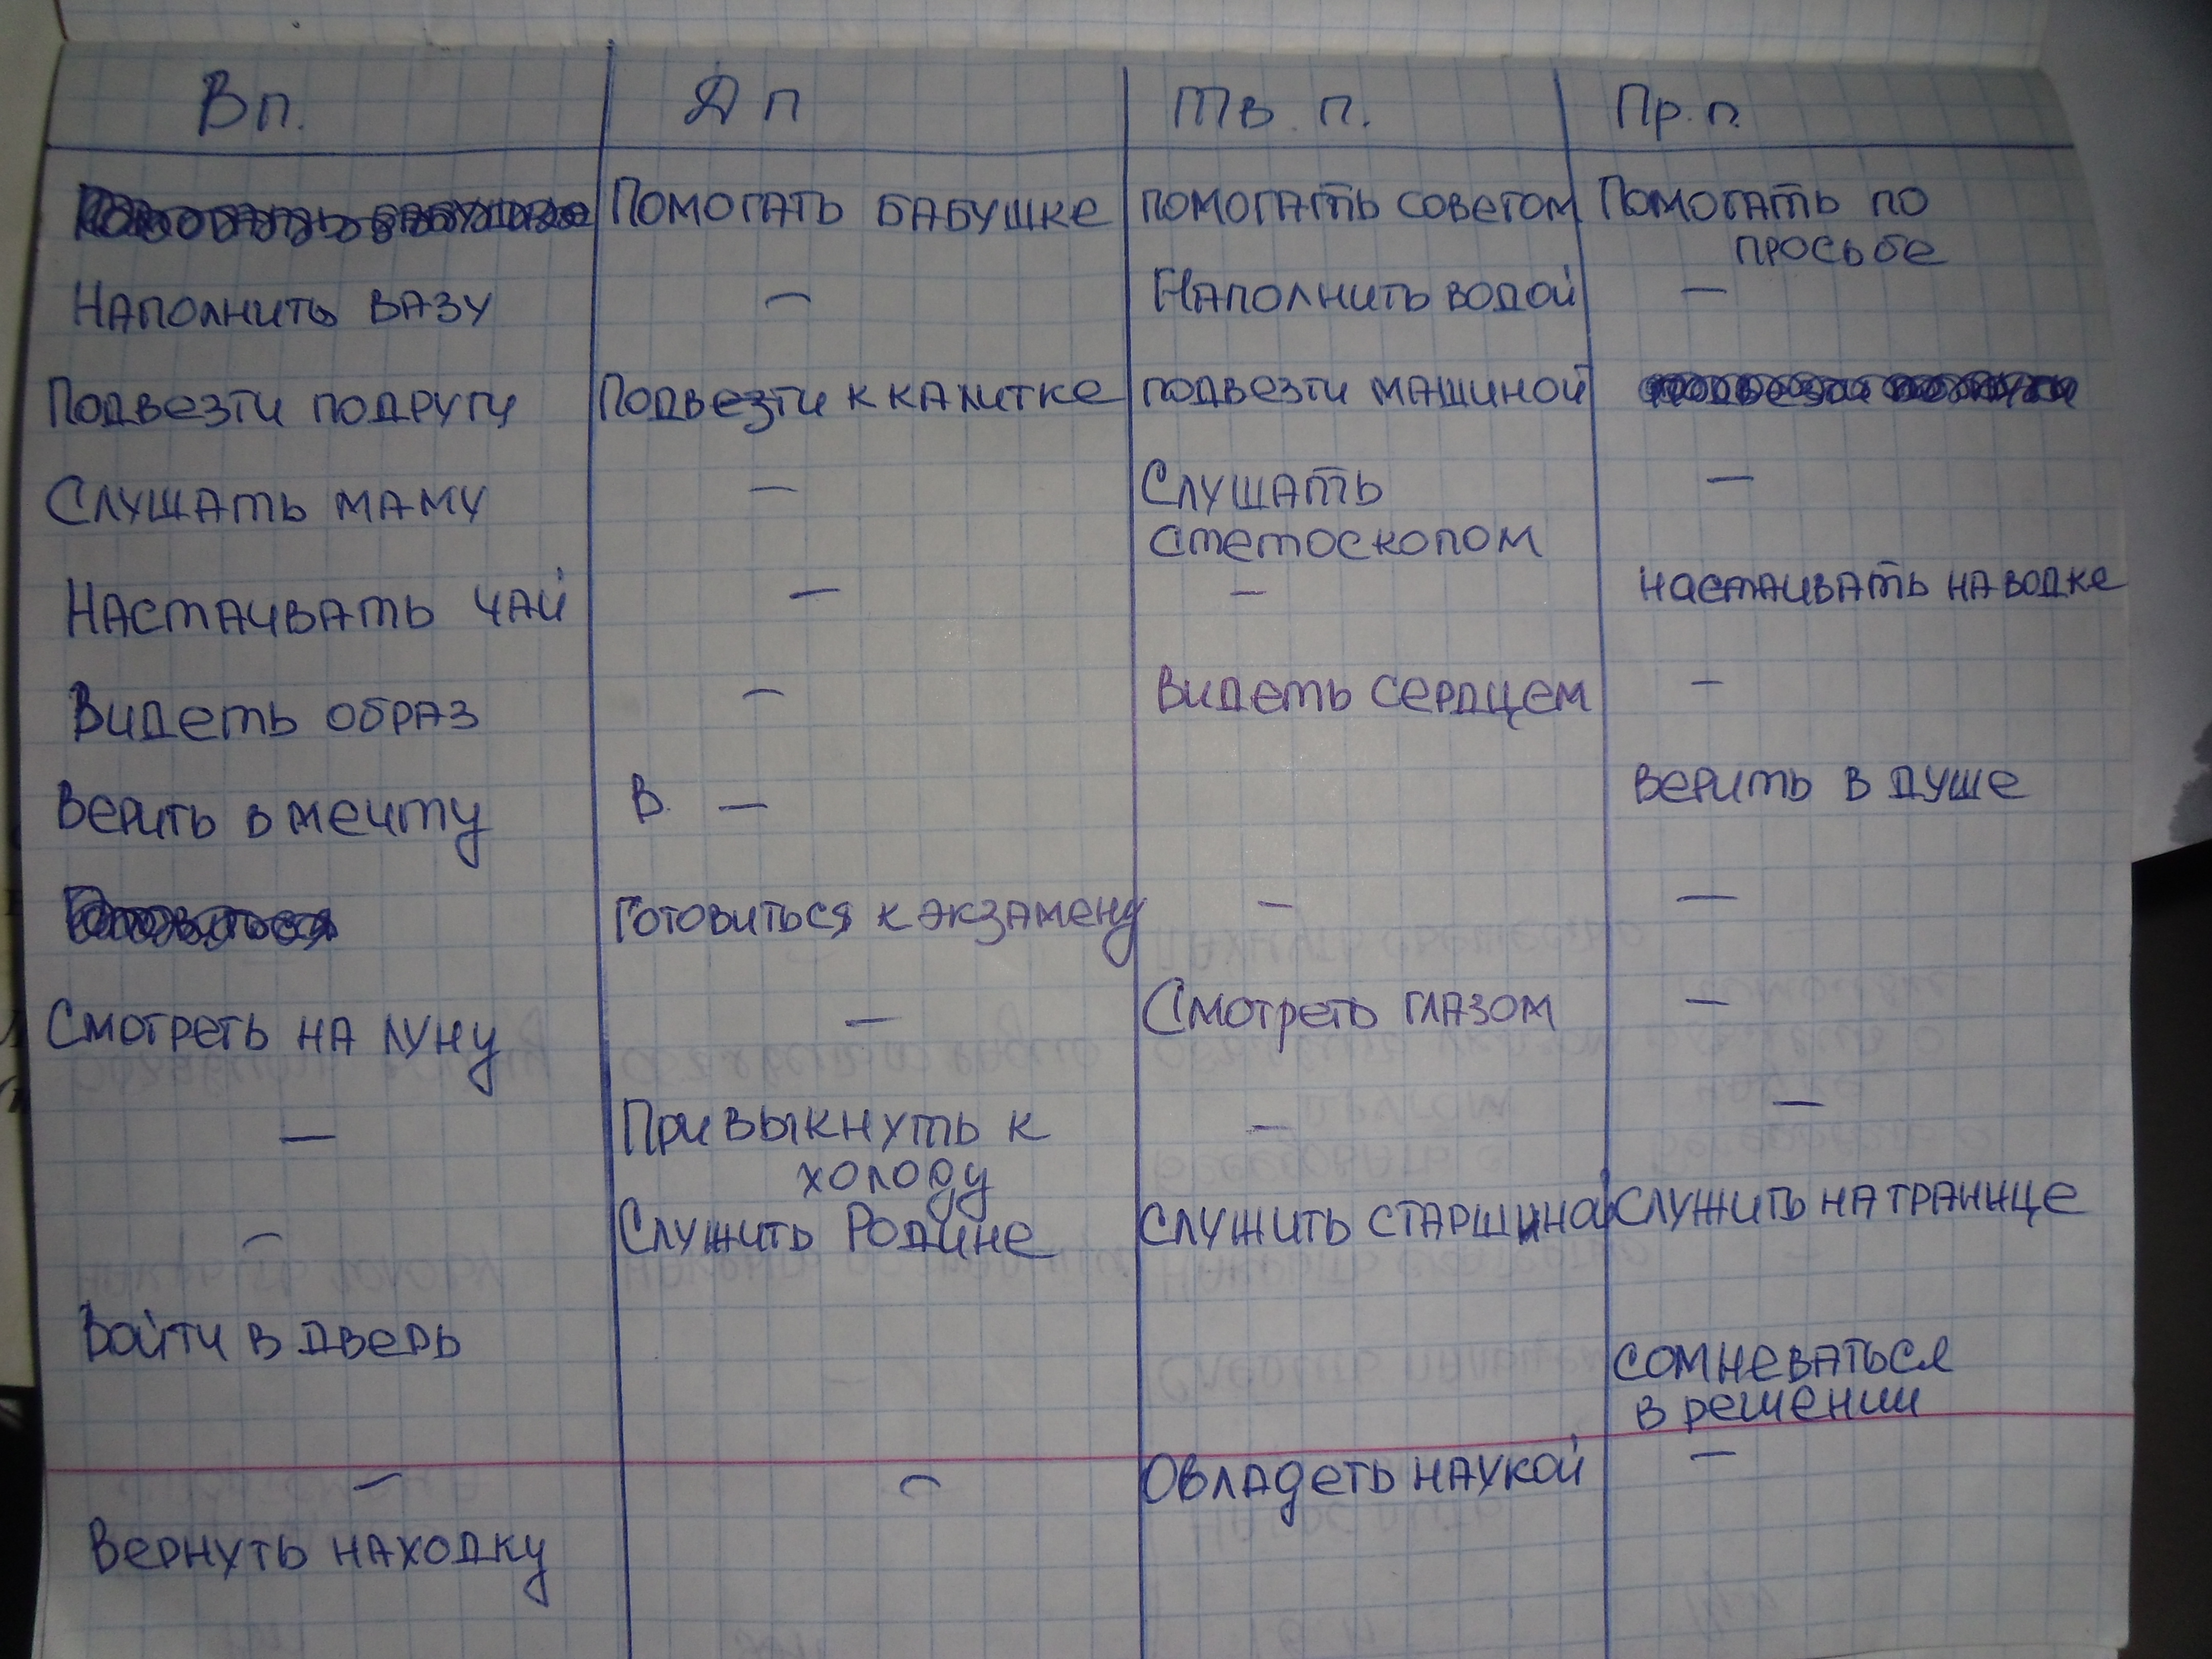 Вп. Дп Тв. п. Пр. п.
Помогать бабушке помогать советом Помогать по
просьбе
Наполнить вазу — Наполнить водой —
Подвезти подругу Подвезти к калитке подвезти машиной
Слушать маму — Слушать —
стетоскопом
Настаивать чай — — настаивать на водке
Видеть образ — Видеть сердцем —
Верить в мечту В. — Верить в душе
Готовиться к экзамену — —
Смотреть на луну — Смотреть глазом —
— Привыкнуть к — —
холоду
— Служить Родине Служить старшиной Служить на границе
Войти в дверь
сомневаться
в решении
— — Овладеть наукой —
Вернуть находку